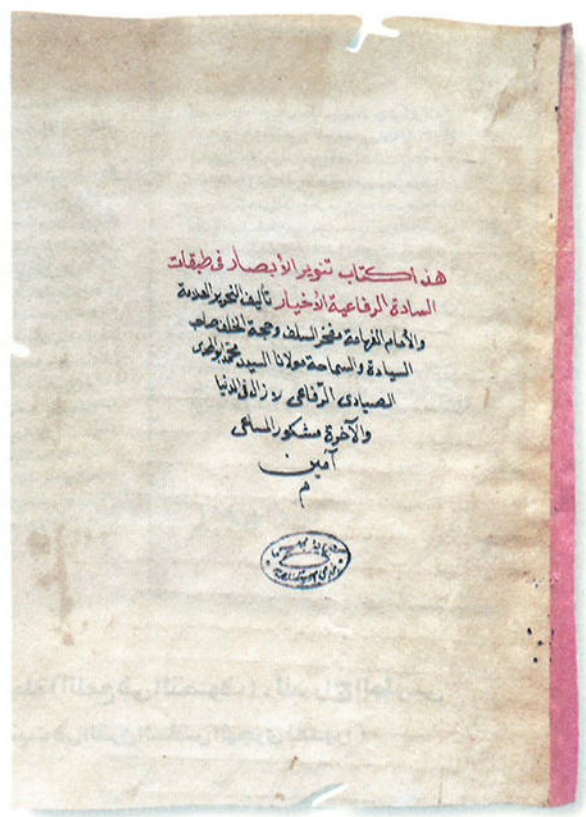 هذا كتاب تنوير الأبصار في طبقات
السادة الرفاعية الأخيار تأليف النحرير العلامة
والأمام الفهامة مفخر السلف وحجة الخلف صاحب
السيادة والسماحة مولانا السيد محمد ابو الهدى
الصيادى الرّفاعى لا زال فى الدنيا
والآخرة مشكور المساعى
آمين
م